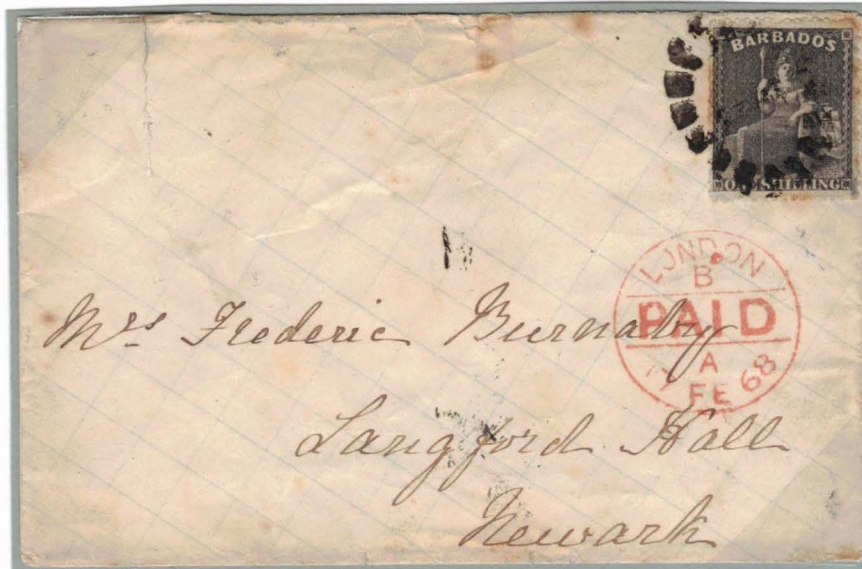 BARBADOS
ONE SHILLING
LONDON
B
PAID
A
FE 68
Mrs Frederic Burnaby
Langford Hall
Newark